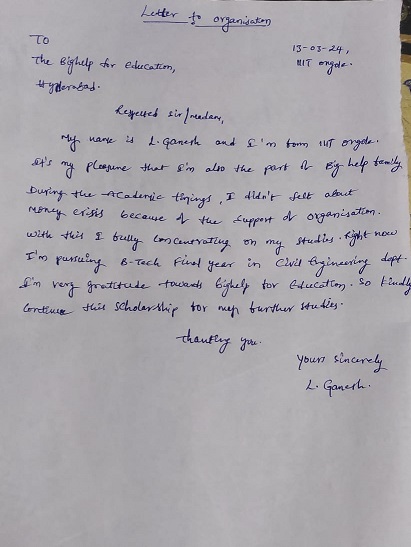 Letter to organisation
TO
13-03-24,
The Bighelp for education,
IIIT ongole.
Hyderabad.
Respected sir/madam,
My name is L. Ganesh and I'm from IIIT ongole.
It's my pleasure that I'm also the part of Big help family.
During the Academic things, I didn't felt about
money crisis because of the support of organisation.
with this I fully concentrating on my studies. Right now
I'm pursuing B-Tech Final year in Civil Engineering dept.
I'm very gratitude towards bighelp for Education. So kindly
continue this scholarship for my further studies.
Thanking you.
Yours sincerely
L. Ganesh.